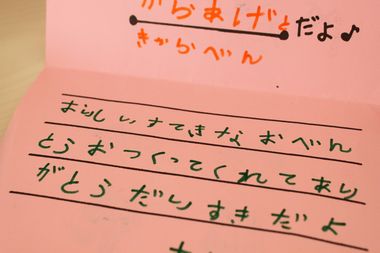 からあげとだよ♪
きからべん
おいしいすてきなおべん
とうおつくってくれてあり
がとうだいすきだよ